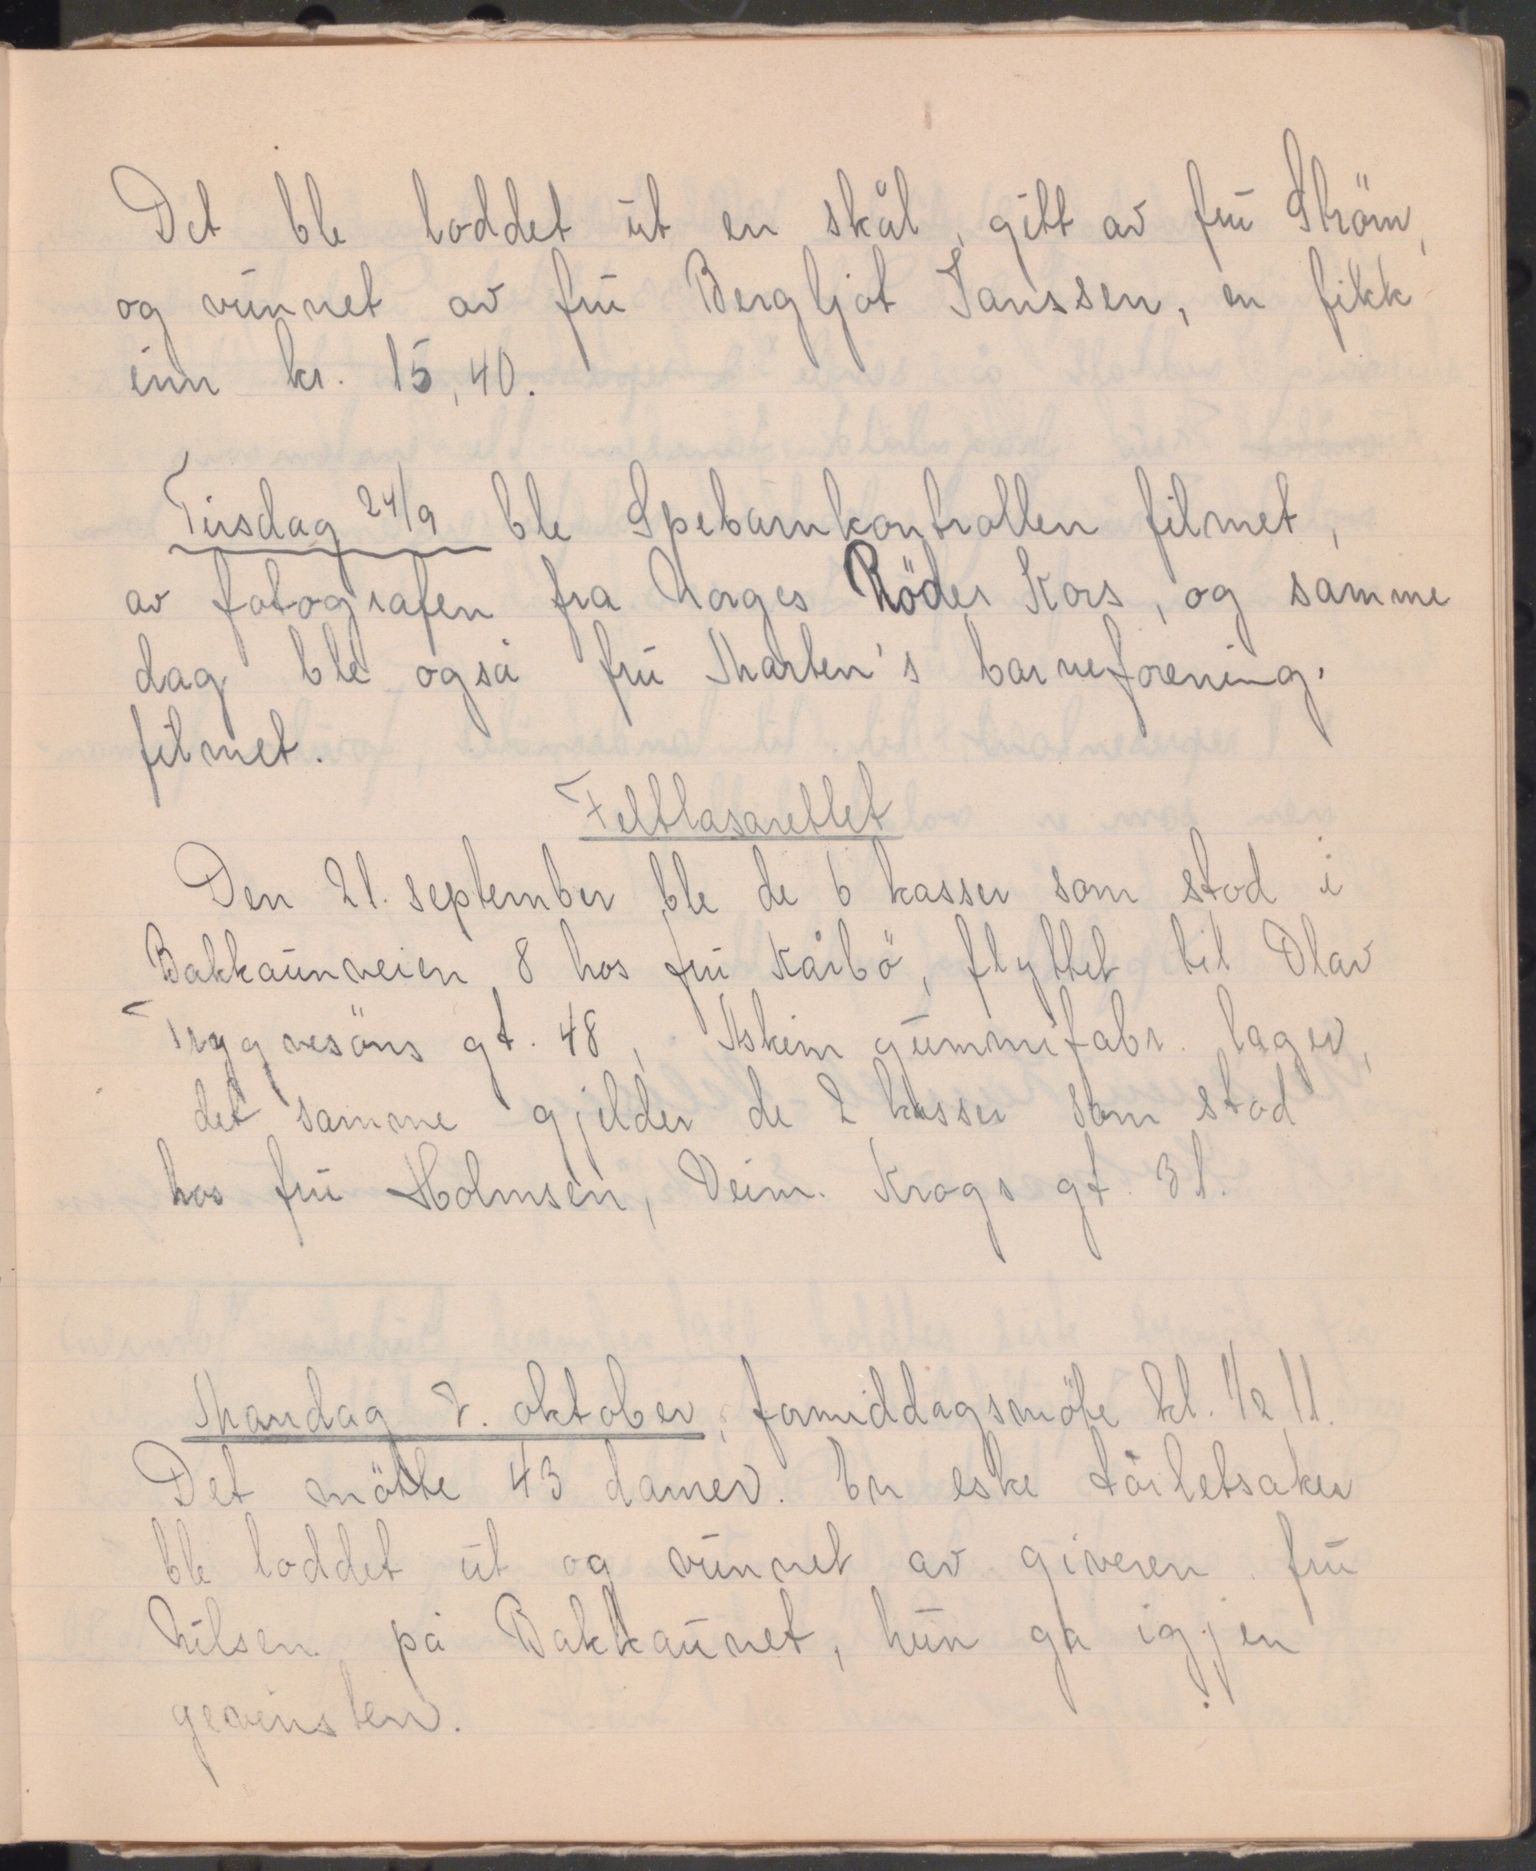 Det ble loddet ut en skål, gitt av fru Ström,
og vunnet av fru Bergljot Janssen, en fikk
inn kr. 15,40.
Tirsdag 24/9 ble Spebarnkontrollen filmet,
av fotografen fra Norges Röder Kors, og samme
dag ble også fru Marten's barneforening
filmet.
Feltlasarettet
Den 21. september ble de 6 kasser som stod i
Bakkaunveien 8 hos fru Kårbö, flyttet til Olav
Trygvesöns gt. 48, Askim gummifabr. lager,
det samme gjelder de 2 kasser som stod
hos fru Holmsen, Veim. Krogs gt. 31.
Mandag 7. oktober, formiddagsmöte kl. 1/2 11.
Det mötte 43 damer. En eske toiletsaker
ble loddet ut og vunnet av giveren fru
Nilsen på Bakkaunet, hun ga igjen
gevinsten.